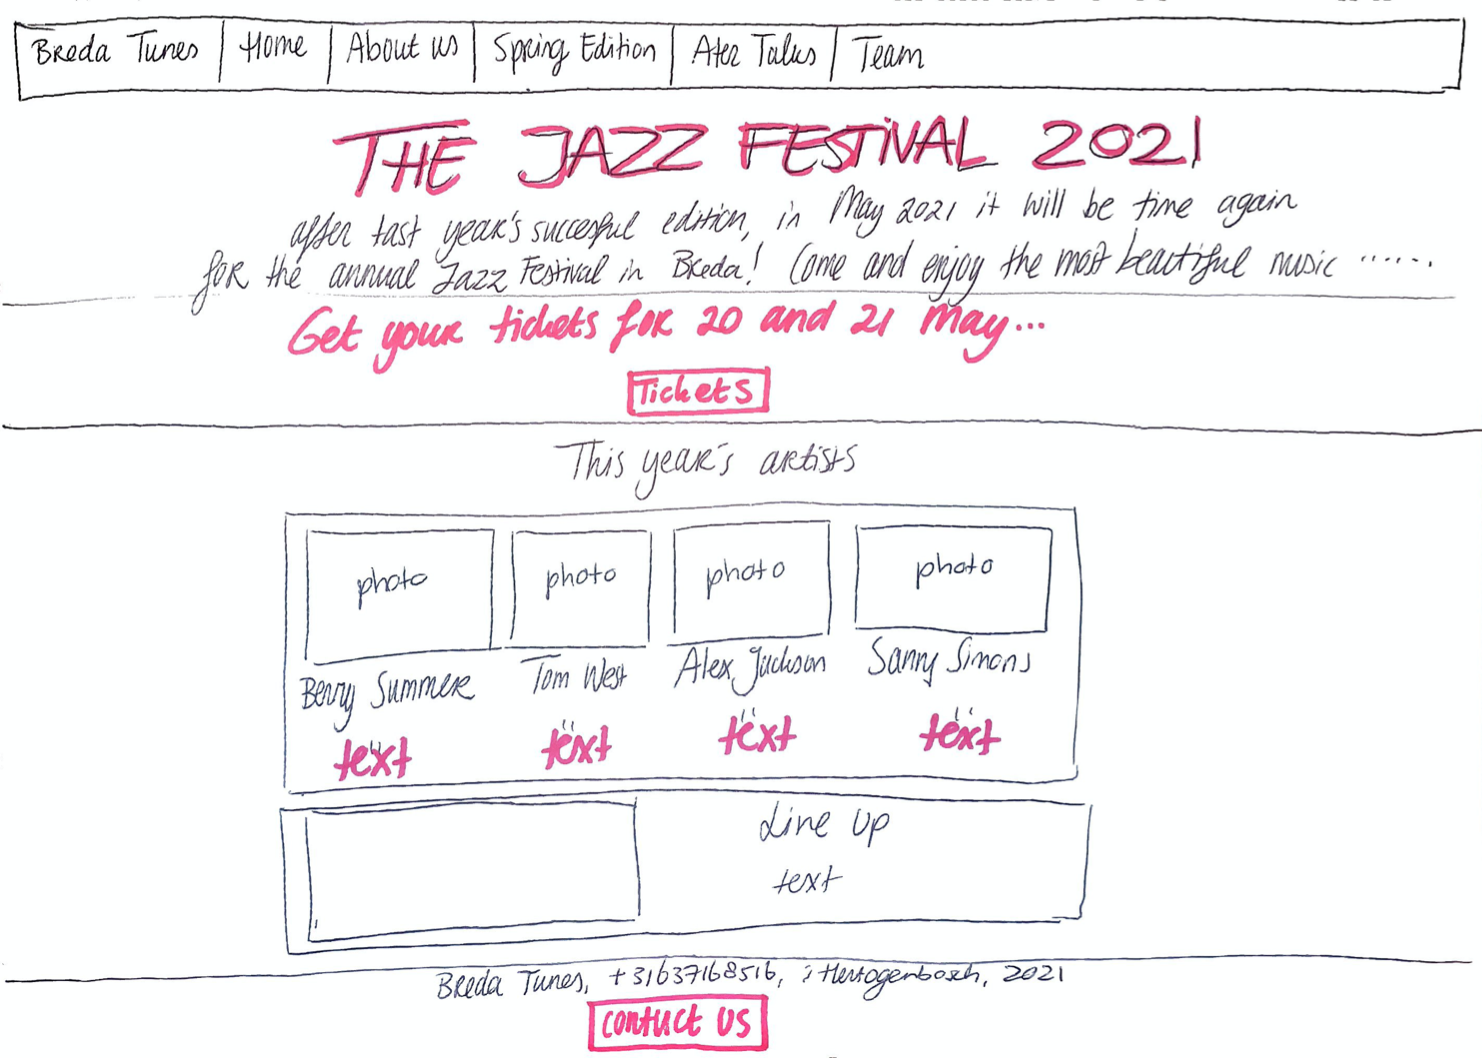 Breda Tunes Home About us Spring Edition Ater Talks Team
THE JAZZ FESTIVAL 2021
after last year's succesful edition, in May 2021 it will be time again
for the annual Jazz Festival in Breda! Come and enjoy the most beautiful music .......
Get your tickets for 20 and 21 May...
Tickets
This year's artists
photo photo photo photo
Berry Summer Tom West Alex Jackson Sanny Simons
text text text text
Line up
text
Breda Tunes, +31637168516, 's Hertogenbosch, 2021
contact us